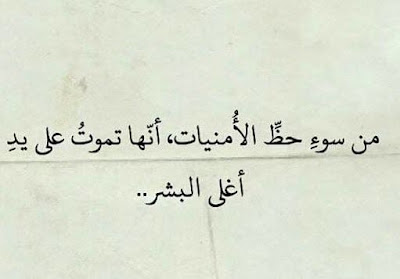 من سوءِ حظِّ الأُمنيات، أنّها تموتُ على يدِ
أغلى البشر..